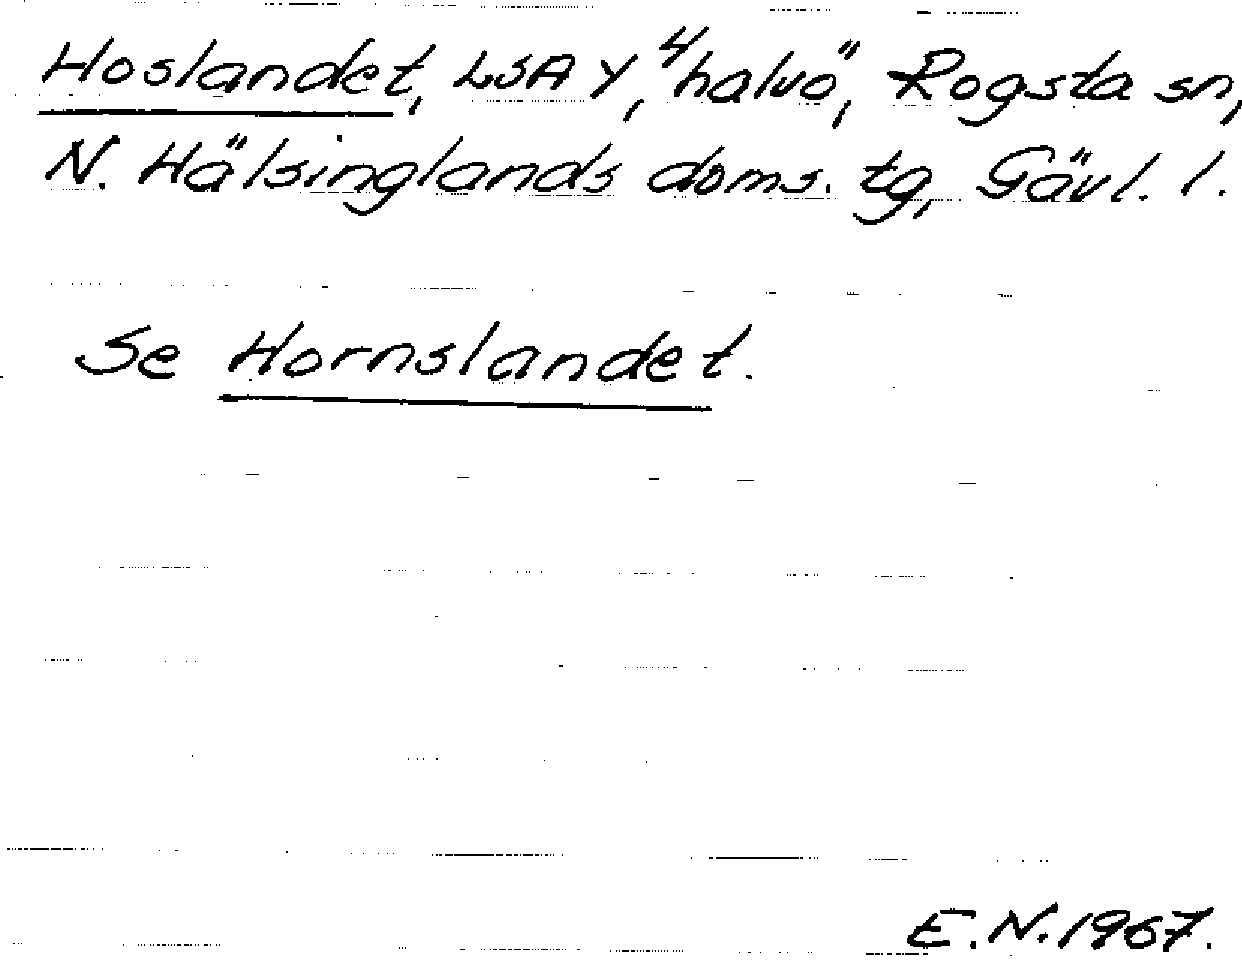 Hoslandet, LSA Y, "halvö", Rogsta sn,
N. Hälsinglands doms. tg, Gävl. l.
Se Hornslandet.
E.N. 1967.